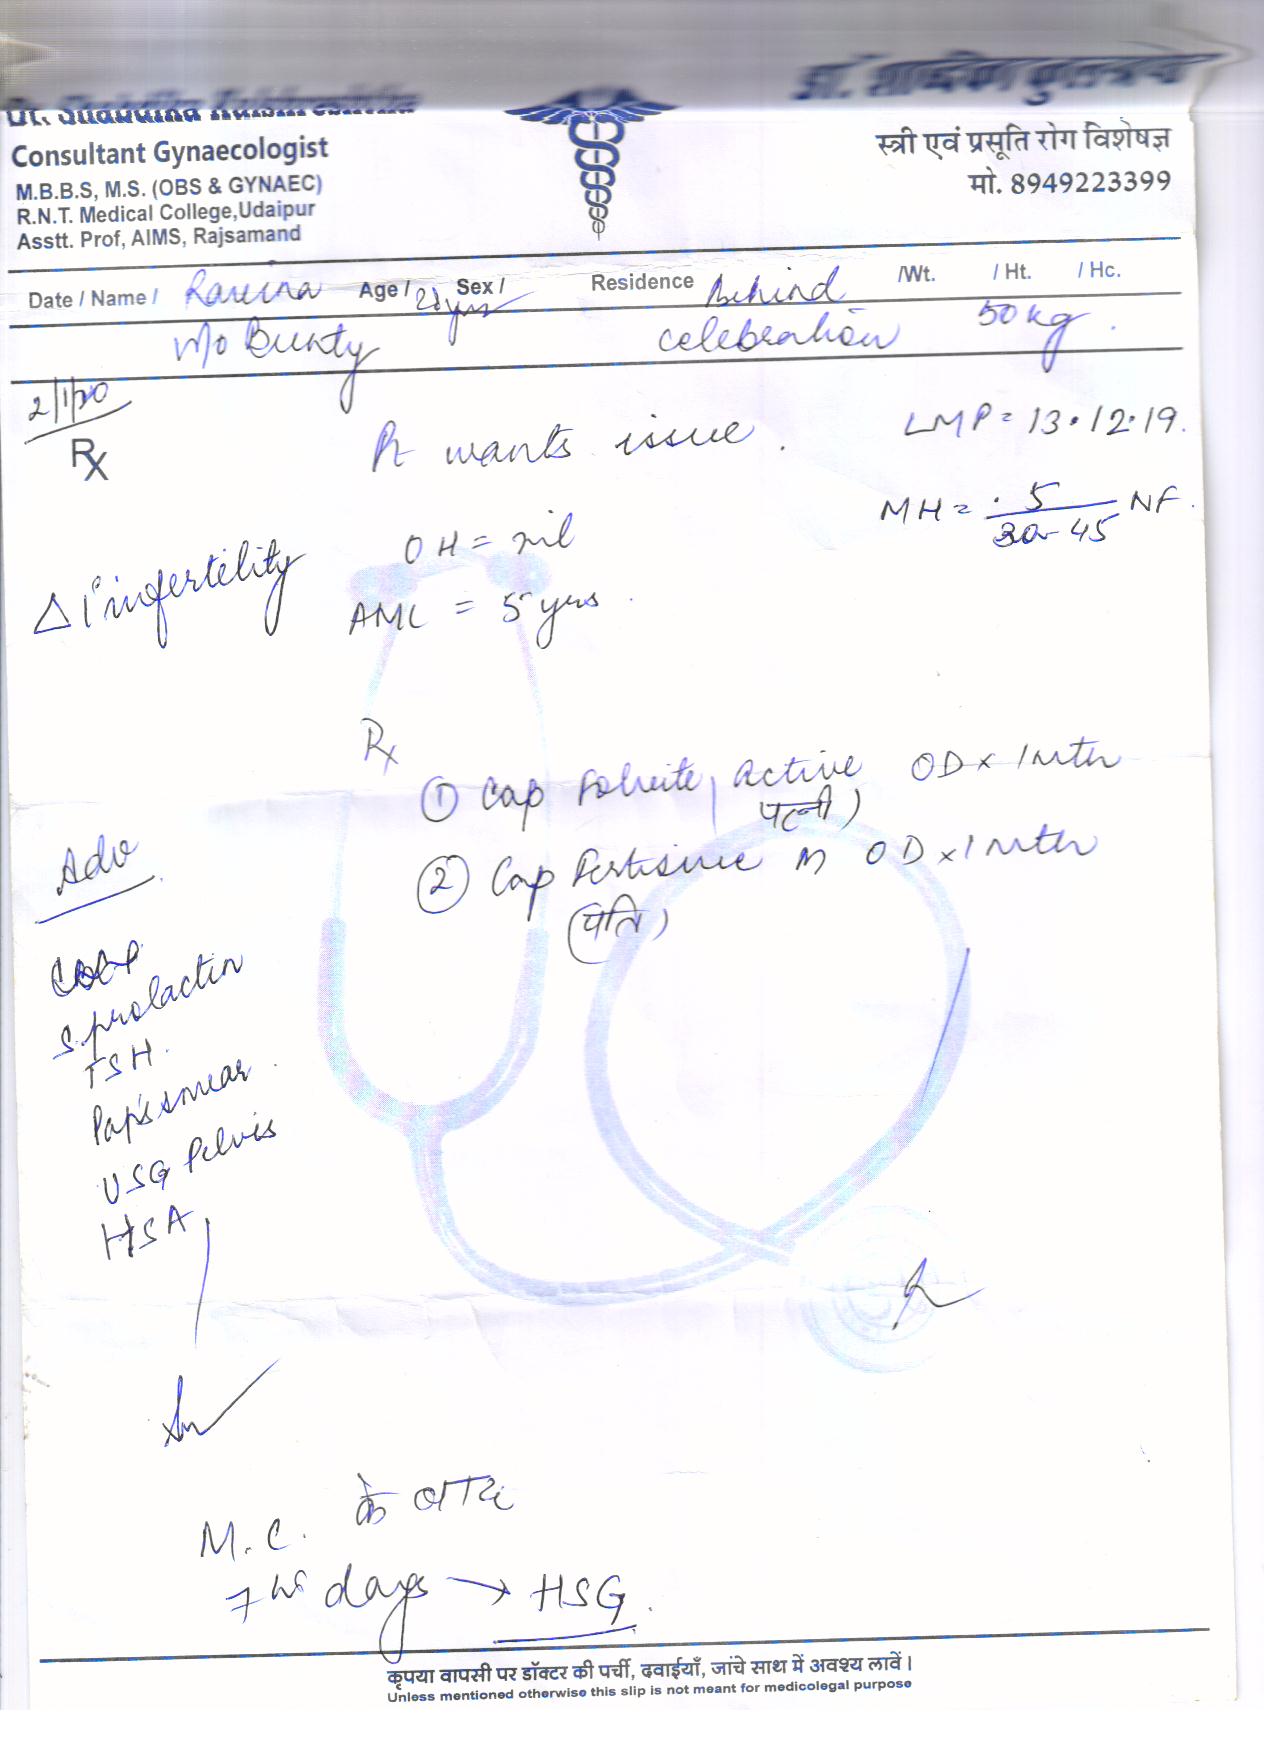 Consultant Gynaecologist
M.B.B.S, M.S. (OBS & GYNAEC)
R.N.T. Medical College,Udaipur
Asstt. Prof, AIMS, Rajsamand
स्त्री एवं प्रसूति रोग विशेषज्ञ
मो. 8949223399
Date / Name / Raveena Age / yrs Sex / Residence Behind /Wt. / Ht. / Hc.
w/o Bunty celebration 50 kg.
2/1/20
Rx
Pt wants issue.
LMP = 13.12.19.
MH = 5/30-45 NF.
OH = nil
Δ 1° infertility
AML = 5 yrs.
Rx
① Cap Active OD x 1 mth
पत्नी)
② Cap M OD x 1 mth
(पति)
Adv
S. prolactin
TSH.
Pap's smear
USG Pelvis
HSA
M.C. के बाद
7th days → HSG.
कृपया वापसी पर डॉक्टर की पर्ची, दवाईयाँ, जांचे साथ में अवश्य लावें।
Unless mentioned otherwise this slip is not meant for medicolegal purpose